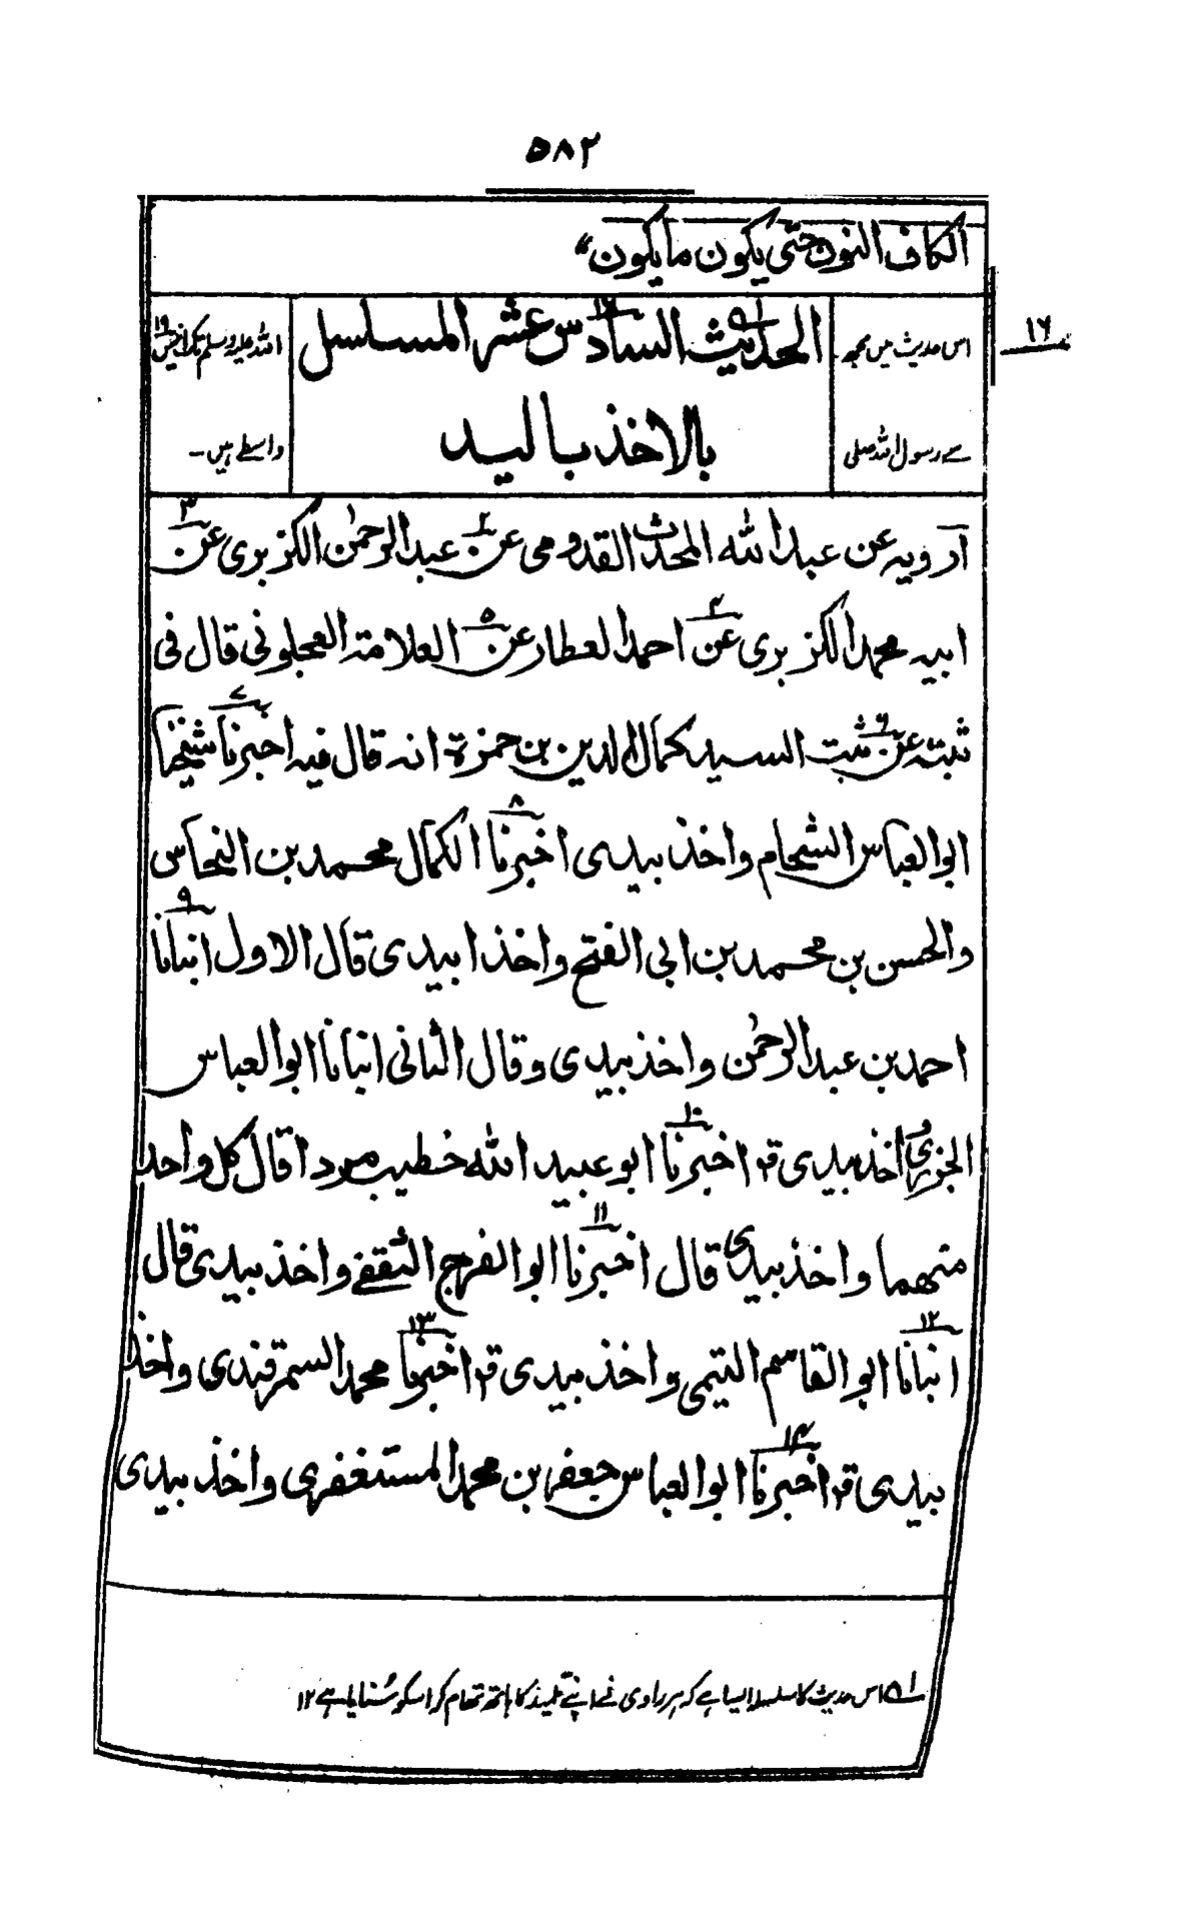 ۵۸۲
الكاف النون حتى يكون ما يكون"
۱۶
اس حدیث میں مجھ
سے رسول اللہ صلی
الحديث السادس عشر المسلسل
بالاخذ باليد
اللہ علیہ وسلم تک انیس ۱۹
واسطے ہیں۔
ارويه عن عبد الله المحدث القدومى عن ۲ عبد الرحمن الكزبرى عن ۳
ابيه محمد الكزبرى عن ۴ احمد العطار عن ۵ العلامة العجلونى قال فى
ثبته عن ۶ ثبت السيد كمال الدين بن حمزة انه قال فيه اخبرنا ۷ شيخنا
ابو العباس الشحام واخذ بيدى اخبرنا ۸ الكمال محمد بن النحاس
والحسن بن محمد بن ابى الفتح واخذا بيدى قال الاول انبانا ۹
احمد بن عبد الرحمن واخذ بيدى وقال الثانى انبانا ابو العباس
الجزرى واخذ بيدى قا اخبرنا ۱۰ ابو عبيد الله خطيب مردا قال كل واحد
منهما واخذ بيدى قال اخبرنا ۱۱ ابو الفرج الثقفى واخذ بيدى قال
انبانا ۱۲ ابو القاسم التيمى واخذ بيدى قا اخبرنا ۱۳ محمد السمرقندى واخذ
بيدى قا اخبرنا ۱۴ ابو العباس جعفر بن محمد المستغفرى واخذ بيدى
۱ اس حدیث کا سلسلہ ایسا ہے کہ ہر راوی نے اپنے تلمیذ کا ہاتھ تھام کر اسکو سُنایا ہے ۱۲